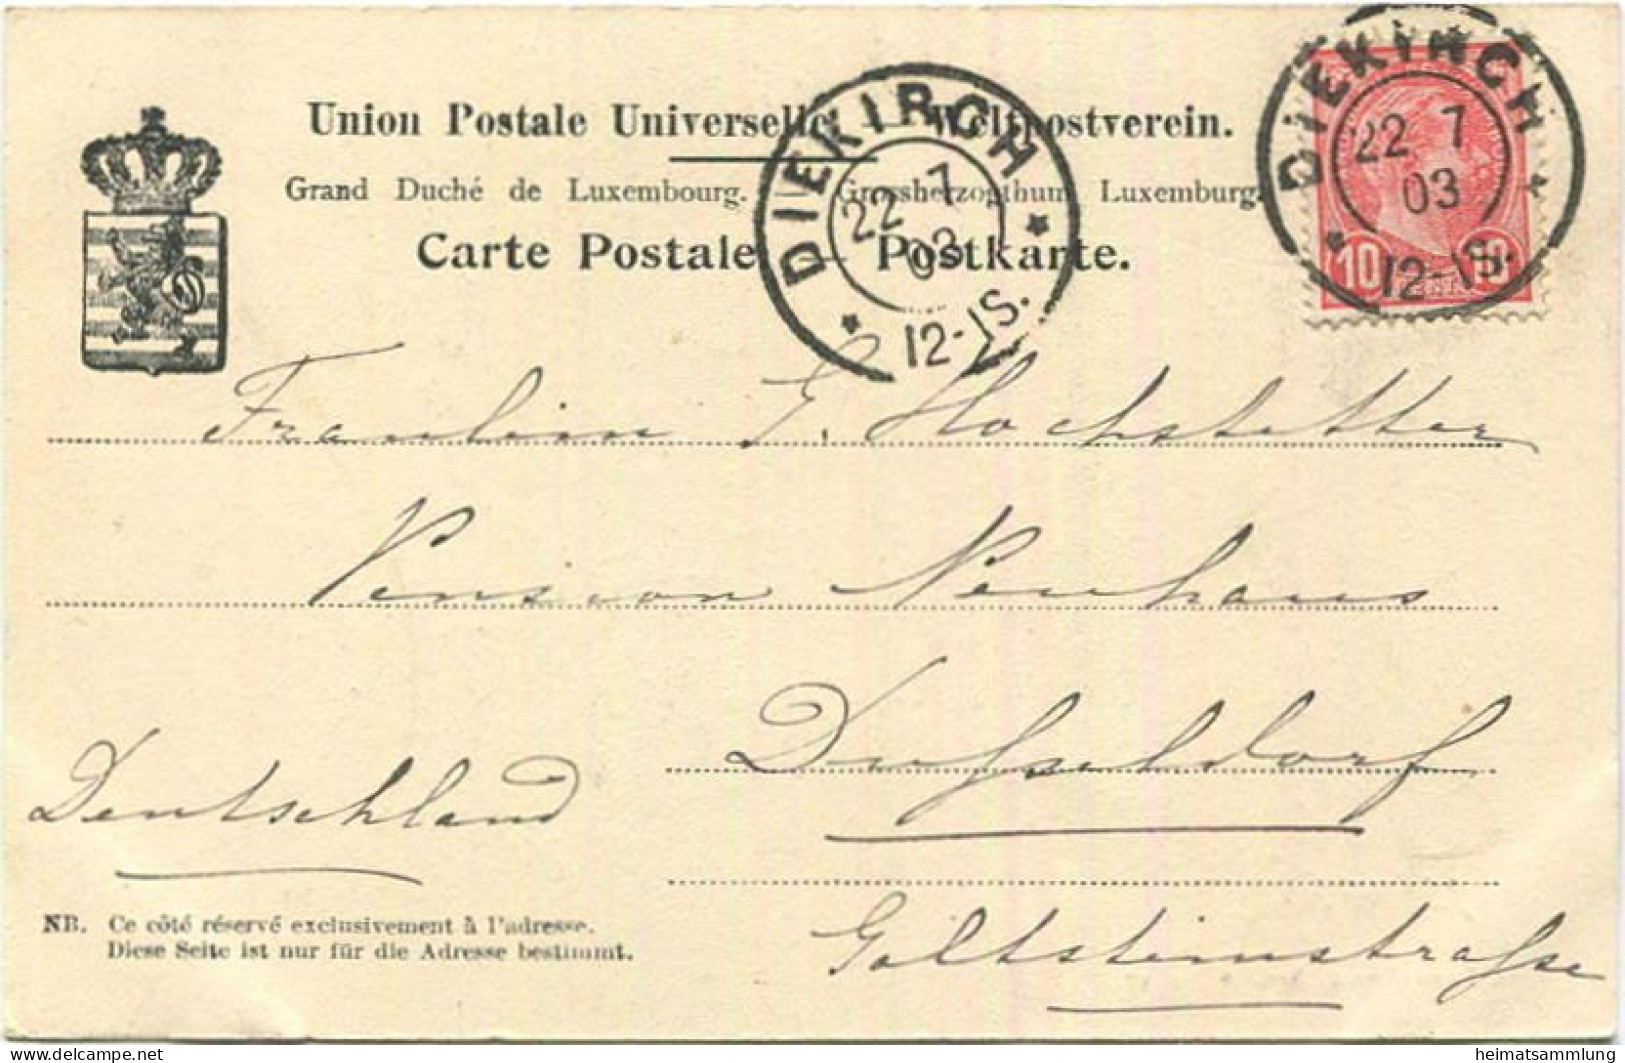 Union Postale Universelle — Weltpostverein.
Grand Duché de Luxembourg. — Grossherzogthum Luxemburg.
Carte Postale — Postkarte.
DIEKIRCH
22 7
03
12-1S.
DIEKIRCH
22 7
03
12-1S.
10 10
Fraulein E. Hochstetter
Pension Neuhaus
Dusseldorf
Deutschland
Goltsteinstrasse
NB. Ce côté réservé exclusivement à l'adresse.
Diese Seite ist nur für die Adresse bestimmt.
delcampe.net
heimatsammlung